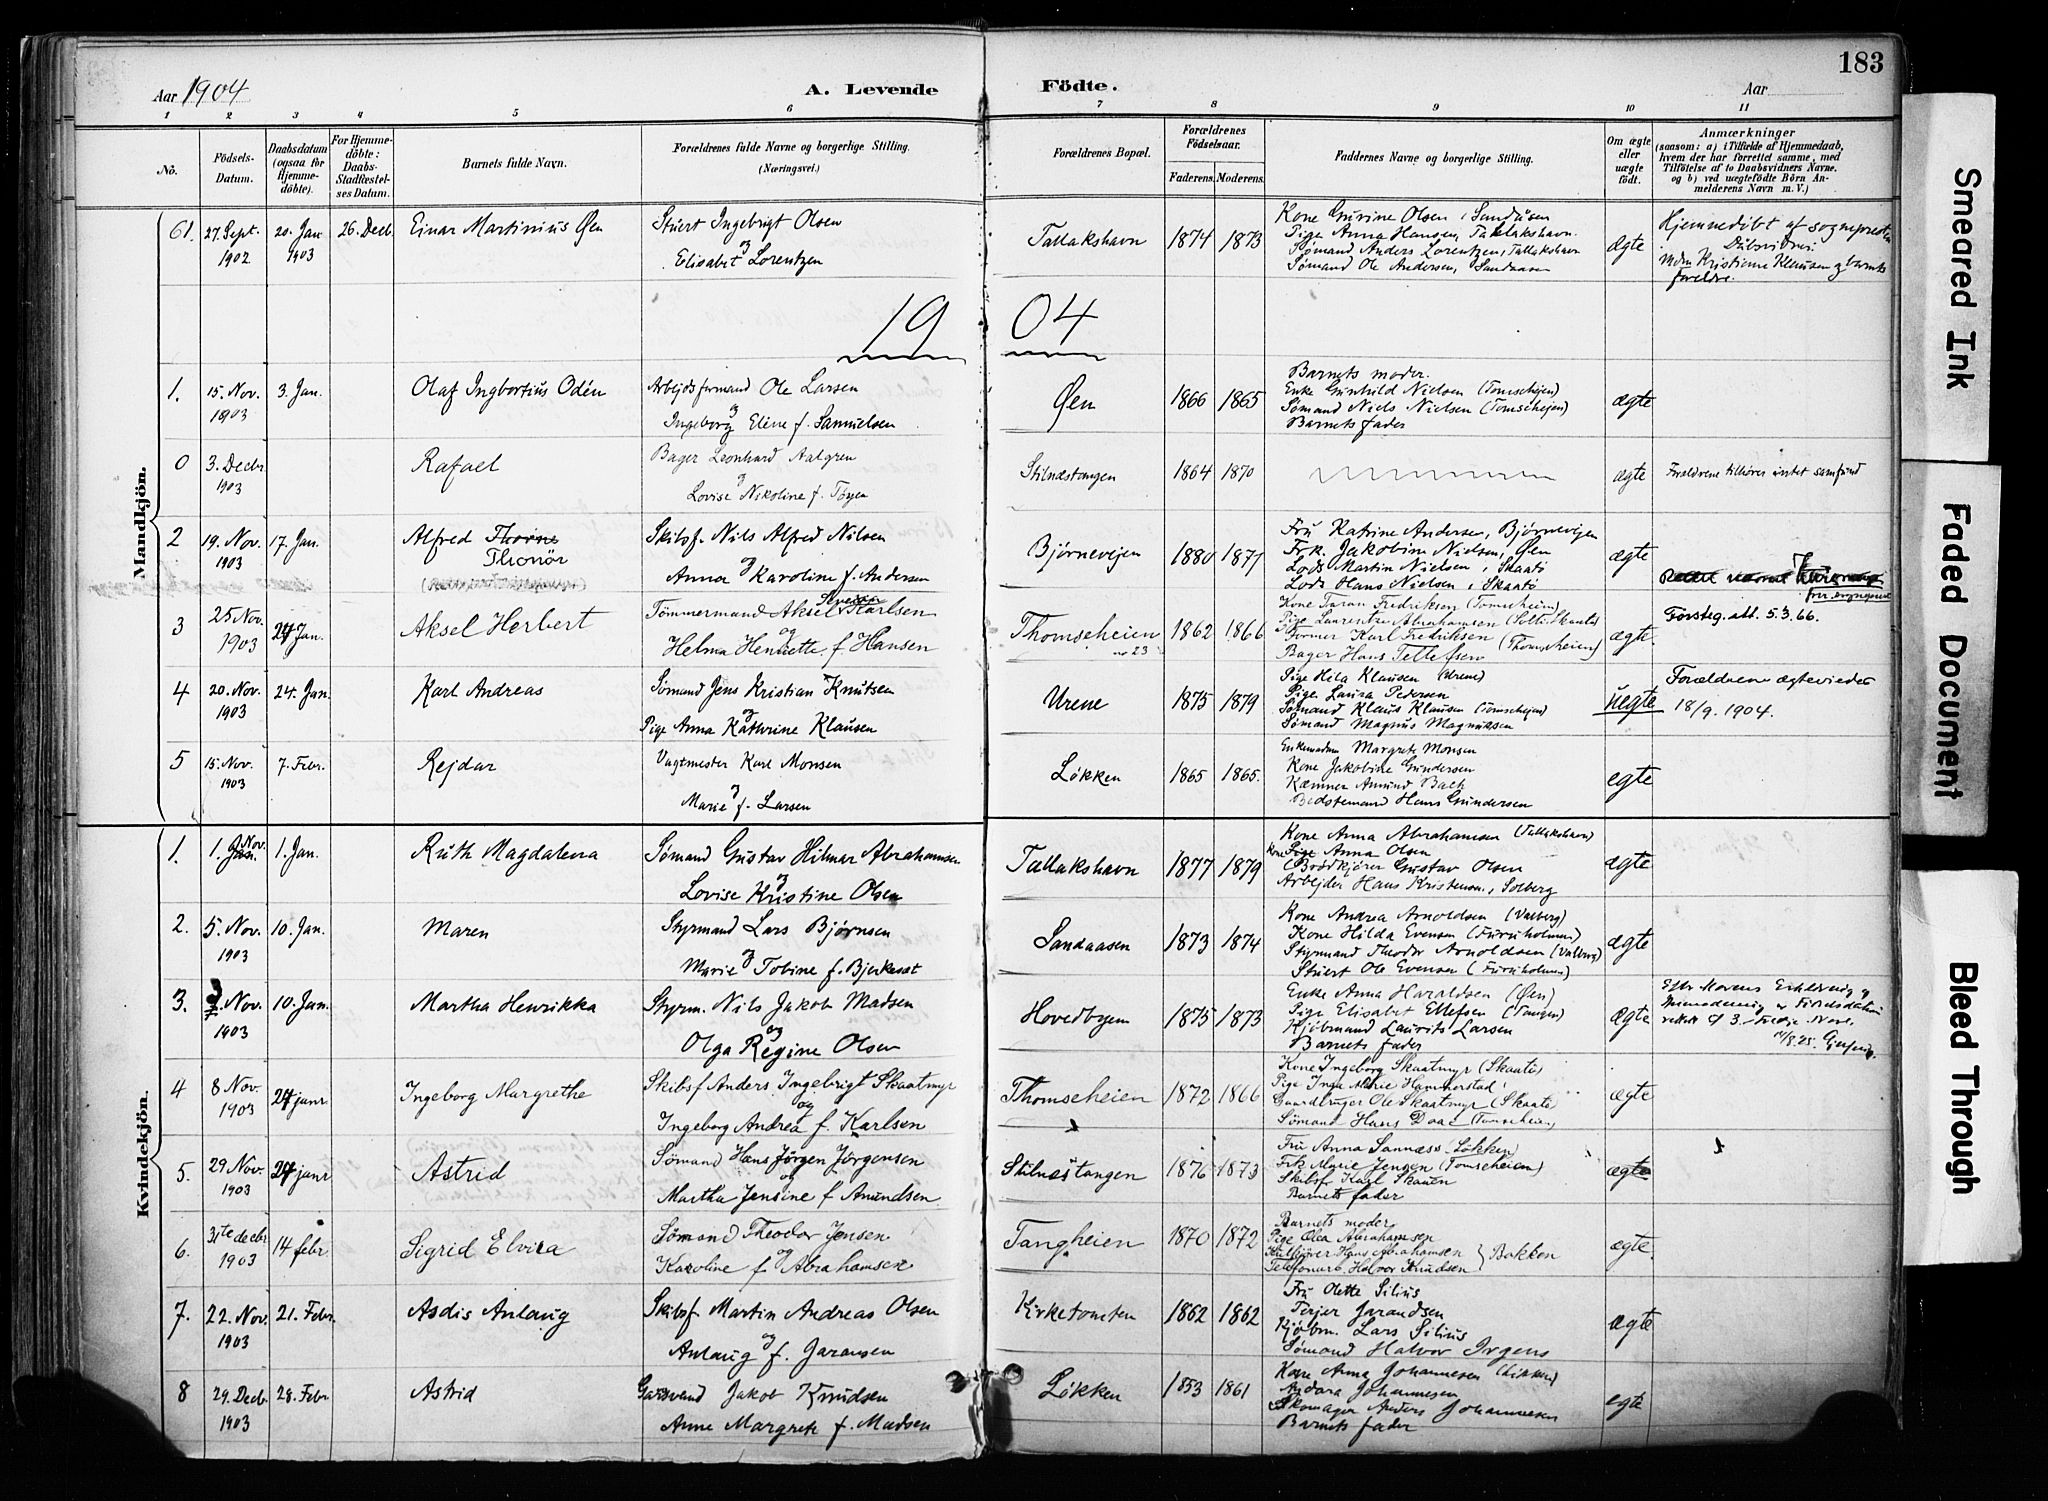 183
Aar 1904
A. Levende
Födte.
Aar
1 2 3 4 5 6 7 8 9 10 11
No.
Födsels-
Datum.
Daabsdatum
(ogsaa for
Hjemme-
döbte).
For Hjemme-
döbte:
Daabs-
Stadfæstel-
ses Datum.
Barnets fulde Navn.
Forældrenes fulde Navne og borgerlige Stilling.
(Næringsvei.)
Forældrenes Bopæl.
Forældrenes
Födselsaar.
Faderens. Moderens.
Faddernes Navne og borgerlige Stilling.
Om ægte
eller
uægte
födt.
Anmærkninger
(saasom: a) i Tilfælde af Hjemmedaab,
hvem der har forrettet samme, med
Tilföielse af to Daabsvidners Navne,
og b) ved uægtefödte Börn An-
melderens Navn m. V.)
Mandkjön.
61. 27. Sept. 1902 20. Jan 1903 26. Decb. Einar Martinius Øen
Stuert Ingebrigt Olsen
og
Elisabet Lorentzen
Tallakshavn 1874 1873
Kone Gurine Olsen, Sandåsen
Pige Anna Hansen, Tallakshavn.
Sømand Anders Lorentzen, Tallakshavn
Sømand Ole Andersen, Sandaasen
ægte
Hjemmedöbt af sognepresten
Kristiane Klausen og barnets
foreldre.
1904
1. 15. Nov. 1903 3. Jan. Olaf Ingbortius Odén
Arbejdsformand Ole Larsen
og
Ingeborg Eline f. Samuelsen
Øen 1866 1865
Barnets moder.
Enke Gunhild Nielsen (Tomsehejen)
Sømand Niels Nielsen (Tomsehejen)
Barnets fader
ægte
0 3. Decbr 1903 Rafael
Bager Leonhard Aalgren
og
Lovise Nikoline f.
Stilnæstangen 1864 1870
ægte
Forældrene tilhører intet samfund
2 19. Nov. 1903 17. Jan. Alfred Thorne
Thonör
Skibsf. Nils Alfred Nilsen
og
Anna Karoline f. Andersen
Bjørnevejen 1880 1877
Fru Katrine Andersen, Bjørnevejen
Frk. Jakobine Nielsen, Øen
Lods Martin Nielsen, Skaatö
Lods Hans Nielsen, Skaatö
ægte
3 25 Nov. 1903 24 Jan. Aksel Herbert
Tömmermand Aksel Karlsen
og
Helma Henriette f. Hansen
Thomseheien no 23 1862 1866
Kone Taran Fredriksen (Tomseheien)
Pige Laurentze Abrahamsen
Former Karl Fredriksen (Thomseheien)
Bager Hans Tellefsen
ægte.
Førsteg. att. 5.3.66.
4 20. Nov. 1903 24. Jan. Karl Andreas
Sømand Jens Kristian Knutsen
og
Pige Anna Kathrine Klausen
Urene 1875 1879
Pige Hilda Klausen (Urene)
Pige Laura Pedersen
Sømand Klaus Klausen (Tomsehejen)
Sømand Magnus Magnussen
uegte
Forældrene ægteviede
18/9. 1904.
5 15. Nov. 1903 7. Febr. Rejdar
Vagtmester Karl Monsen
og
Marie f. Larsen
Løkken 1865 1865.
Enkemadam Margrete Monsen
Kone Jakobine Gundersen
Kæmner Amund Bach
Bedstemand Hans Gundersen
egte
Kvindekjön.
1. 1. Nov. Jan. 1. Jan. Ruth Magdalena
Sømand Gustav Hilmar Abrahamsen
og
Lovise Kristine Olsen
Tallakshavn 1877 1879
Kone Anna Abrahamsen (Tallakshavn)
Kone Pige Anna Olsen
Brødkjører Gustav Olsen
Arbejder Hans Kristensen, Solberg
ægte
2. 5. Nov. 1903 10. Jan. Maren
Styrmand Lars Bjørnsen
og
Marie Tobine f. Bjerkeset
Sandaasen 1873 1874
Kone Andrea Arnoldsen (Valberg)
Kone Hilda Evensen (Furuholmen)
Styrmand Theodor Arnoldsen (Valberg)
Stuert Ole Evensen (Furuholmen)
ægte
3. 3. Nov. 1903 10. Jan. Martha Henrikka
Styrm. Nils Jakob Madsen
og
Olga Regine Olsen
Hovedbyen 1875 1873
Enke Anna Haraldsen (Øen)
Pige Elisabet Ellefsen (Tangen)
Kjøbmand Laurits Larsen
Barnets fader
ægte
4 8 Nov. 1903 24 janr Ingeborg Margrethe
Skibsf Anders Ingebrigt Skaatmyr
og
Ingeborg Andrea f. Karlsen
Thomseheien 1872 1866
Kone Ingeborg Skaatmyr (Skaatö)
Pige Inga Marie Hammerstad
Gaardbruger Ole Skaatmyr (Skaatö)
Sømand Hans Daae (Tomseheien)
ægte
5. 29 Nov. 1903 24 janr Astrid
Sömand Hans Jörgen Jörgensen
og
Martha Jensine f Amundsen
Stilnæstangen 1876 1873
Fru Anna Sannæss (Løkken)
Frk Marie Jensen (Tomseheien)
Skibsf Karl Skauen
Barnets fader
ægte
6. 31te decbr 1903 14 febr. Sigrid Elvira
Sömand Theodor Jensen
og
Karoline f Abrahamsen
Tangheien 1870 1872
Barnets moder
Pige Olea Abrahamsen
Hans Abrahamsen
Telefonarb. Halvor Knudsen } Bakken
ægte.
7. 22. Nov. 1903 21. Febr. Asdis Anlaug
Skibsf. Martin Andreas Olsen
og
Anlaug f. Jaransen
Kirketomten 1862 1862
Fru Olette Silius
Terjer Jarandsen
Kjøbm. Lars Silius
Sømand Halvor Irgens
ægte
8 29. Decb. 1903 28. Febr Astrid
Garsvend Jakob Knudsen
Anne Margrete f. Madsen
Løkken 1853 1861
Kone Anna Johannesen (Løkken)
Johannesen
Skomager Anders Johannesen
Barnets fader
egte
Smeared Ink
Faded Document
Bleed Through